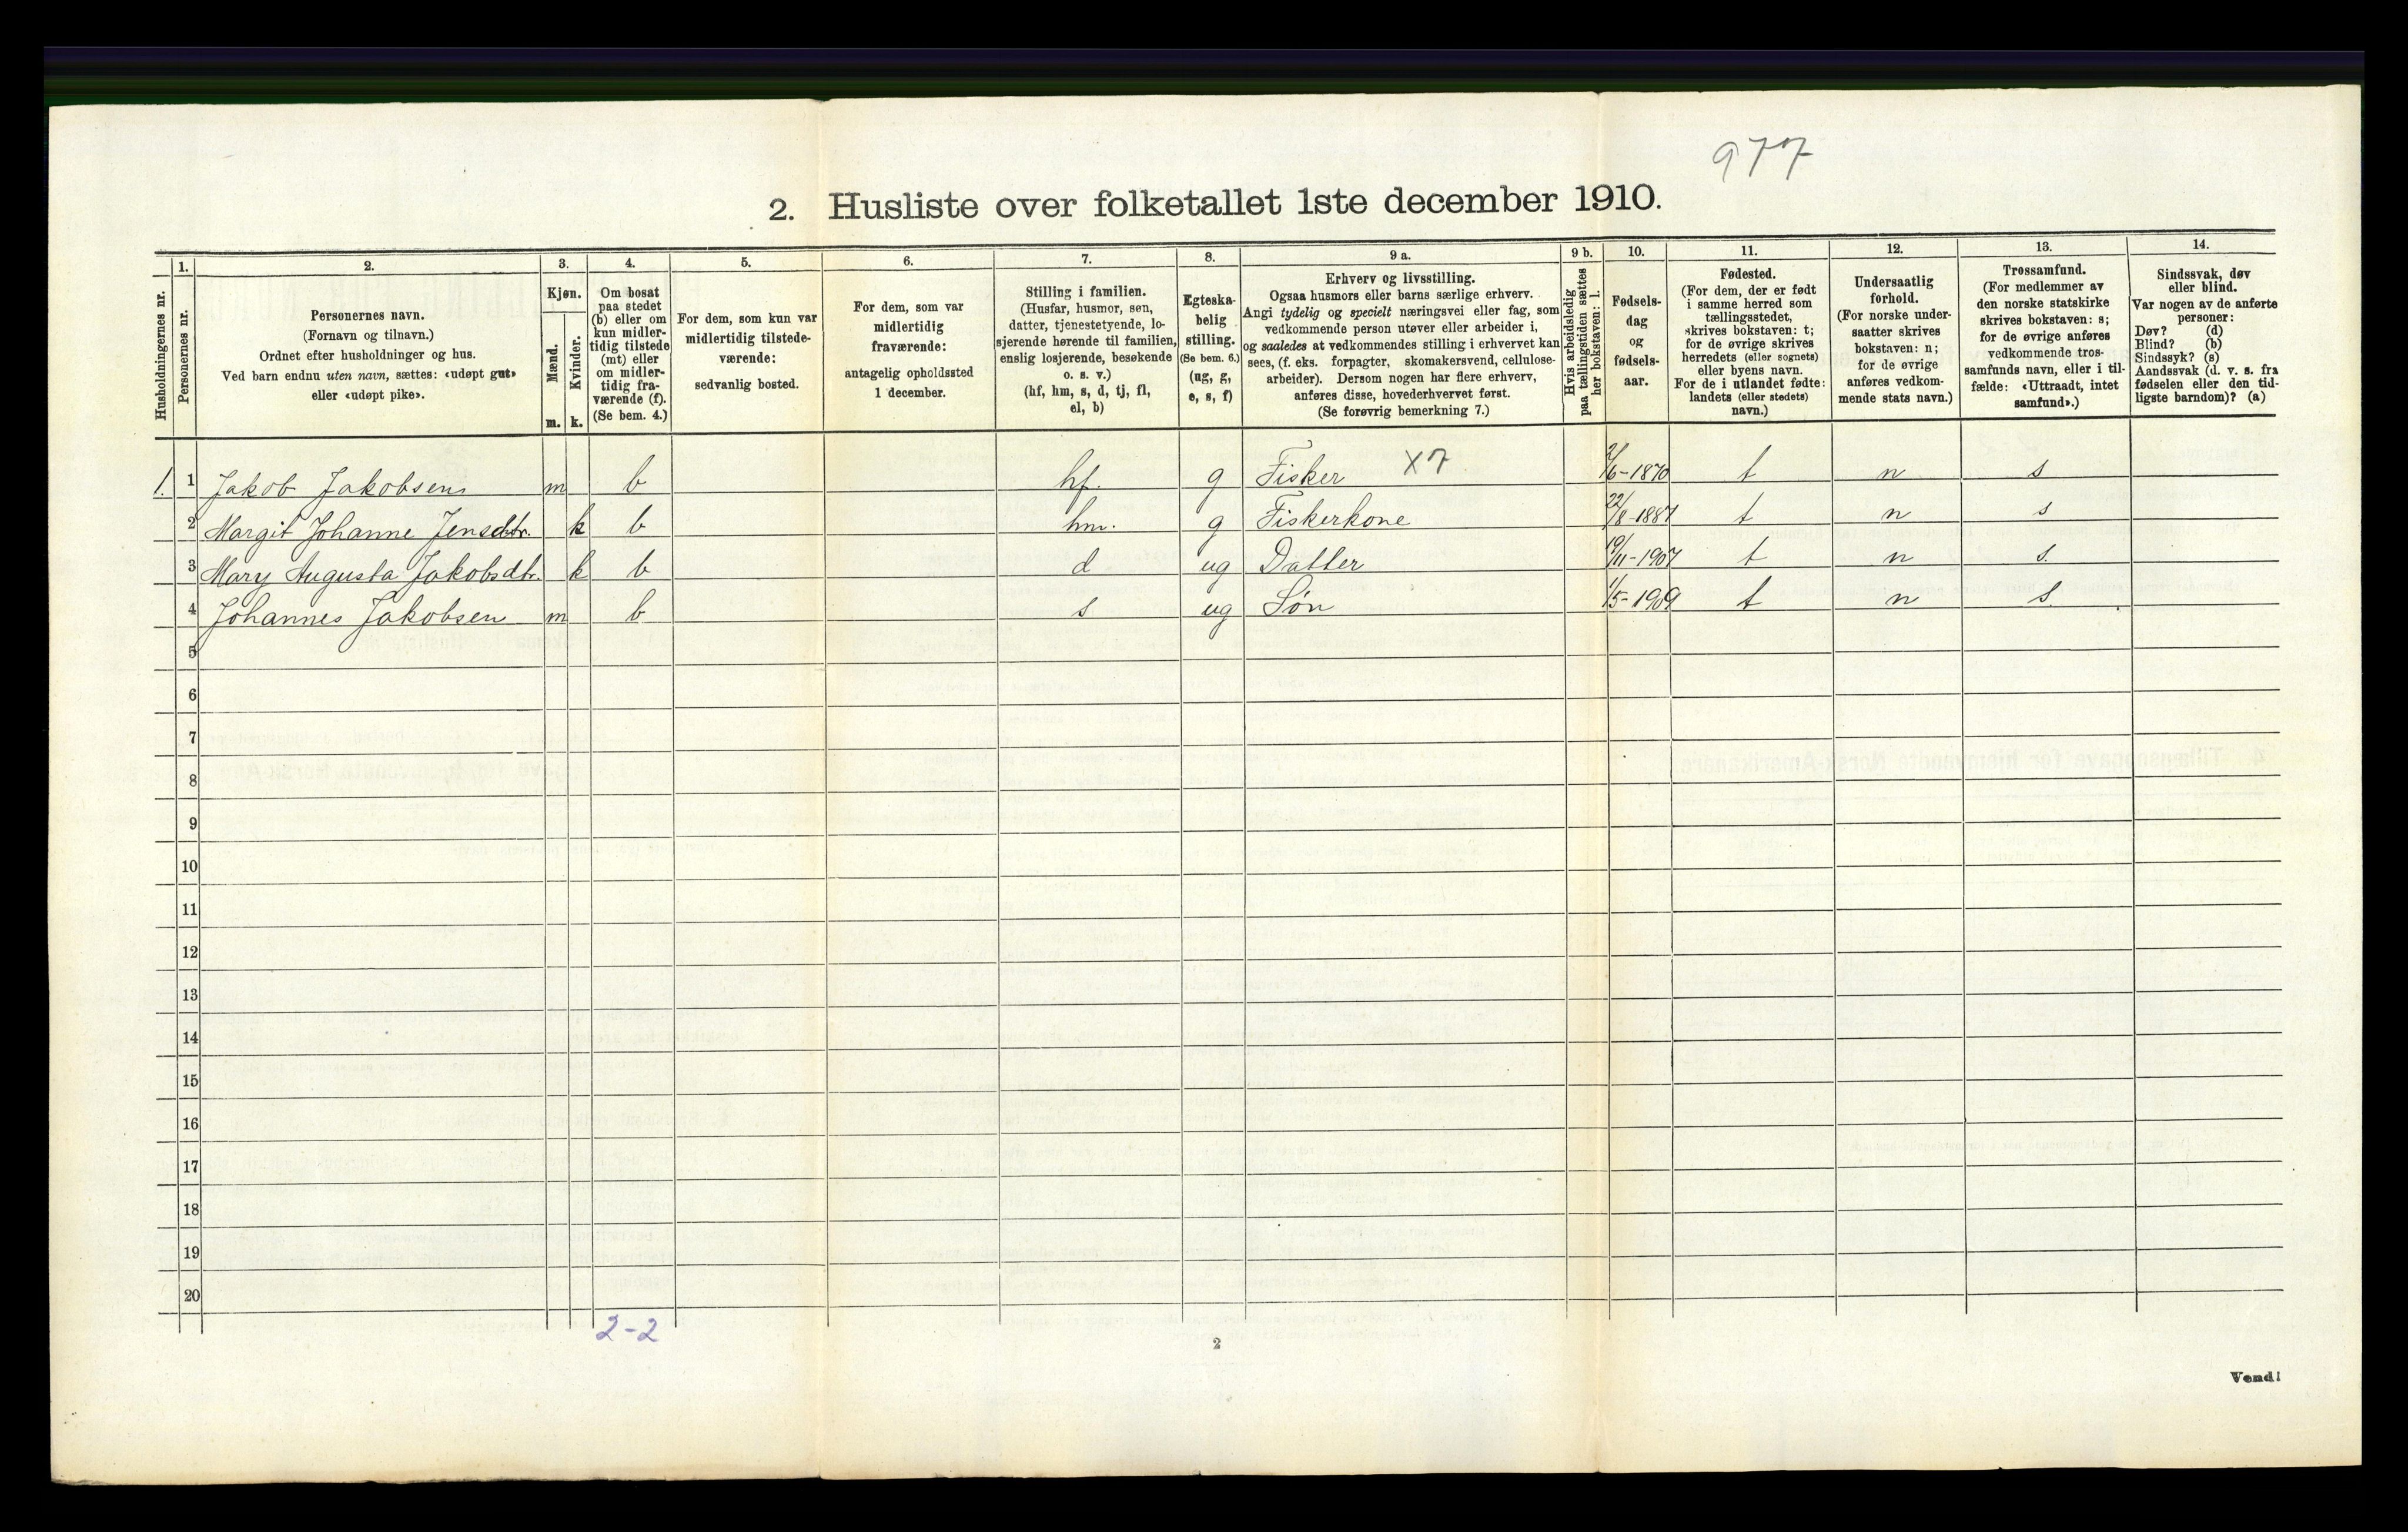 977
2. Husliste over folketallet 1ste december 1910.
Husholdningernes nr.
1.
Personernes nr.
2.
Personernes navn.
(Fornavn og tilnavn.)
Ordnet efter husholdninger og hus.
Ved barn endnu uten navn, sættes: «udøpt gut»
eller «udøpt pike».
3.
Kjøn.
Mænd.
Kvinder.
m. k.
4.
Om bosat
paa stedet
(b) eller om
kun midler-
tidig tilstede
(mt) eller
om midler-
tidig fra-
værende (f).
(Se bem. 4.)
5.
For dem, som kun var
midlertidig tilstede-
værende:
sedvanlig bosted.
6.
For dem, som var
midlertidig
fraværende:
antagelig opholdssted
1 december.
7.
Stilling i familien.
(Husfar, husmor, søn,
datter, tjenestetyende, lo-
sjerende hørende til familien,
enslig losjerende, besøkende
o. s. v.)
(hf, hm, s, d, tj, fl,
el, b)
8.
Egteska-
belig
stilling.
(Se bem. 6.)
(ug, g,
e, s, f)
9 a.
Erhverv og livsstilling.
Ogsaa husmors eller barns særlige erhverv.
Angi tydelig og specielt næringsvei eller fag, som
vedkommende person utøver eller arbeider i,
og saaledes at vedkommendes stilling i erhvervet kan
sees, (f. eks. forpagter, skomakersvend, cellulose-
arbeider). Dersom nogen har flere erhverv,
anføres disse, hovederhvervet først.
(Se forøvrig bemerkning 7.)
9 b.
Hvis arbeidsledig
paa tællingstiden sættes
her bokstaven: l.
10.
Fødsels-
dag
og
fødsels-
aar.
11.
Fødested.
(For dem, der er født
i samme herred som
tællingsstedet,
skrives bokstaven: t;
for de øvrige skrives
herredets (eller sognets)
eller byens navn.
For de i utlandet fødte:
landets (eller stedets)
navn.)
12.
Undersaatlig
forhold.
(For norske under-
saatter skrives
bokstaven: n;
for de øvrige
anføres vedkom-
mende stats navn.)
13.
Trossamfund.
(For medlemmer av
den norske statskirke
skrives bokstaven: s;
for de øvrige anføres
vedkommende tros-
samfunds navn, eller i til-
fælde: «Uttraadt, intet
samfund».)
14.
Sindssvak, døv
eller blind.
Var nogen av de anførte
personer:
Døv? (d)
Blind? (b)
Sindssyk? (s)
Aandssvak (d. v. s. fra
fødselen eller den tid-
ligste barndom)? (a)
1. 1 Jakob Jakobsen m b hf. g Fisker X7 /6-1870 t n s
2 Margit Johanne Jensdtr. k b hm. g Fiskerkone 22/8-1887 t n s
3 Mary Augusta Jakobsdtr. k b d ug Datter 19/11-1907 t n s.
4 Johannes Jakobsen m b s ug Søn 1/5-1909 t n s.
5
6
7
8
9
10
11
12
13
14
15
16
17
18
19
20
2-2
2
Vend!